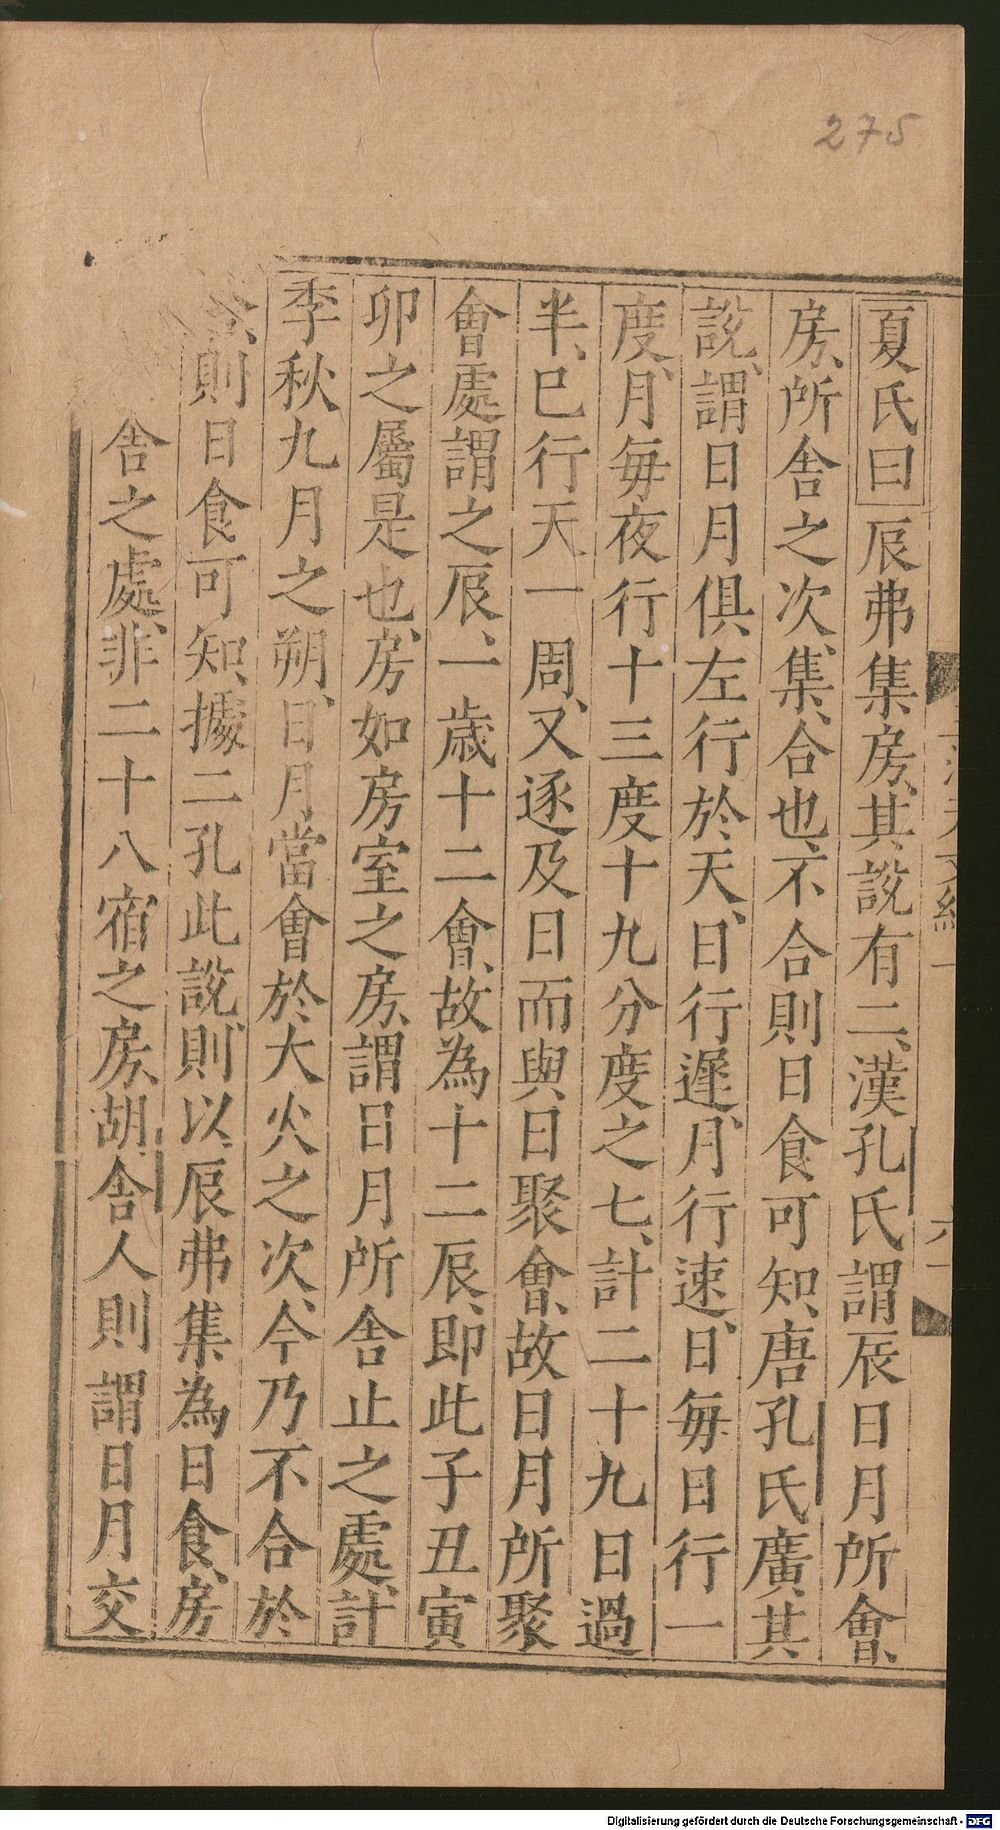 275
夏氏曰辰弗集房、其說有二、漢孔氏謂辰日月所會、
房、所舍之次、集、合也、不合則日食可知、唐孔氏廣其
說、謂日月俱、左行於天、日行遲、月行速、日每日行一
度、月每夜行十三度十九分度之七、計二十九日過
半、已行天一周、又逐及日而與日聚會、故日月所聚
會處謂之辰、一歲十二會、故為十二辰、即此子丑寅
卯之屬是也、房、如房室之房、謂日月所舍止之處、計
季秋九月之朔、日月當會於大火之次、今乃不合於
舍、則日食可知、據二孔此說、則以辰弗集為日食、房
舍之處、非二十八宿之房、胡舍人則謂日月交
六
Digitalisierung gefördert durch die Deutsche Forschungsgemeinschaft - DFG